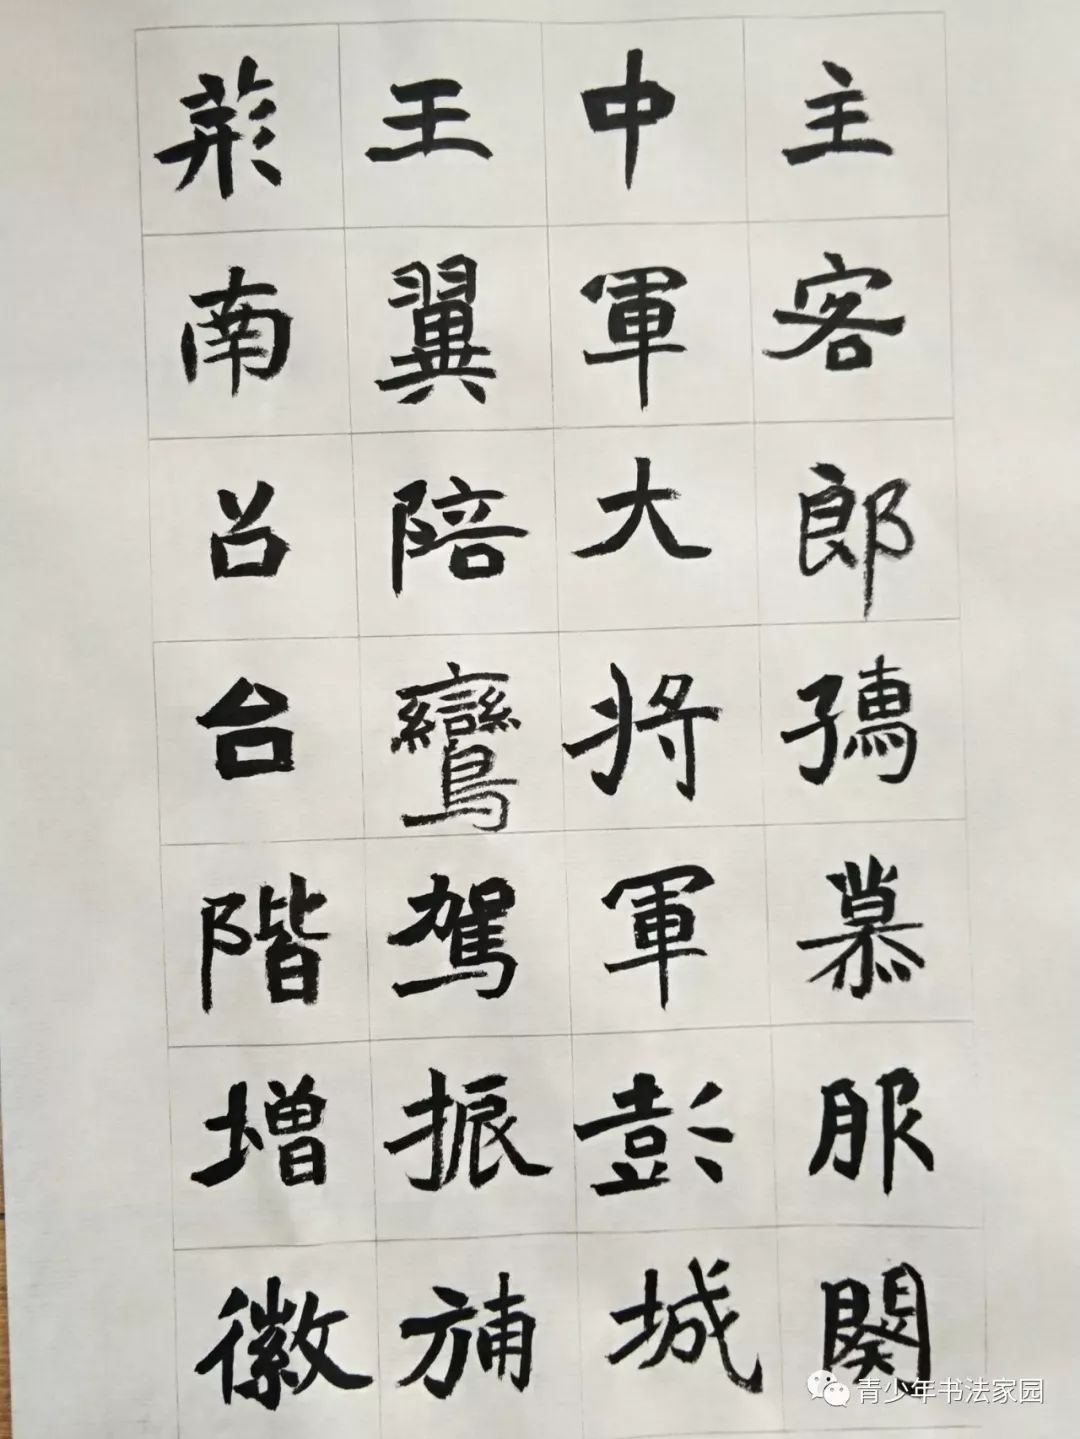 主客郎孺慕服闋
中軍大將軍彭城
王翼陪鸞駕振旆
荊南吕台階增徽
青少年书法家园